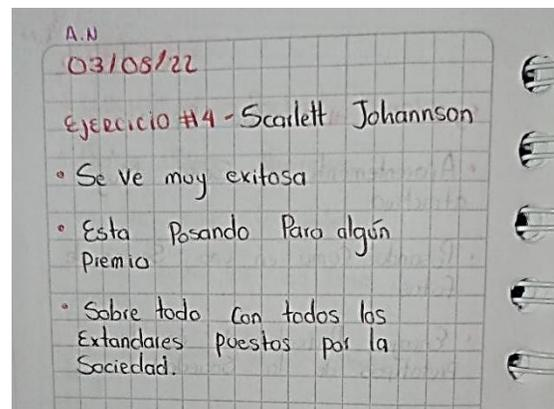 A.N
03/05/22
Ejercicio #4 - Scarlett Johannson
• Se ve muy exitosa
• Esta Posando Para algún
Premio
• Sobre todo con todos los
Extandares puestos por la
Sociedad.